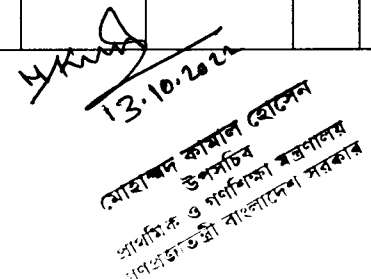 13.10.2022
মোহাম্মদ কামাল হোসেন
উপসচিব
প্রাথমিক ও গণশিক্ষা মন্ত্রণালয়
গণপ্রজাতন্ত্রী বাংলাদেশ সরকার